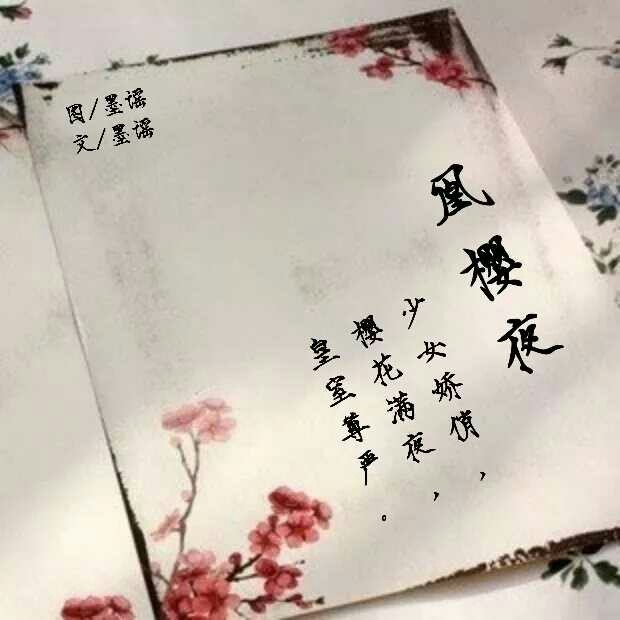 图/墨谣
文/墨谣
凰樱夜
少女娇俏，
樱花满夜，
皇室尊严。